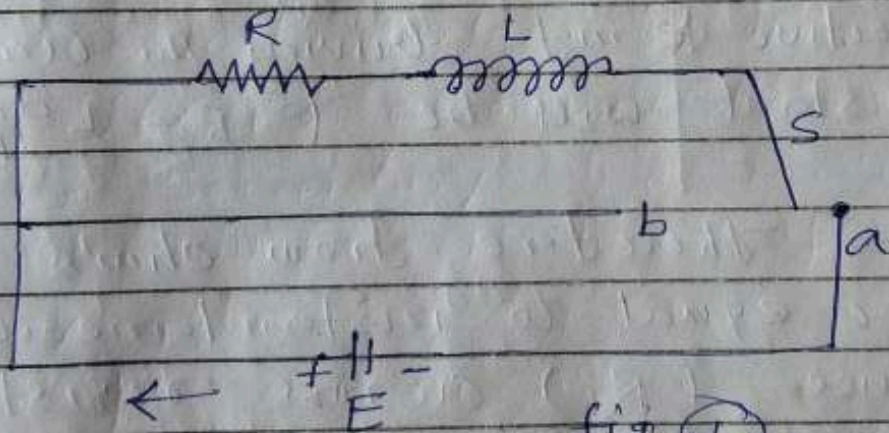 R L
S
b
a
+ -
E
fig 1